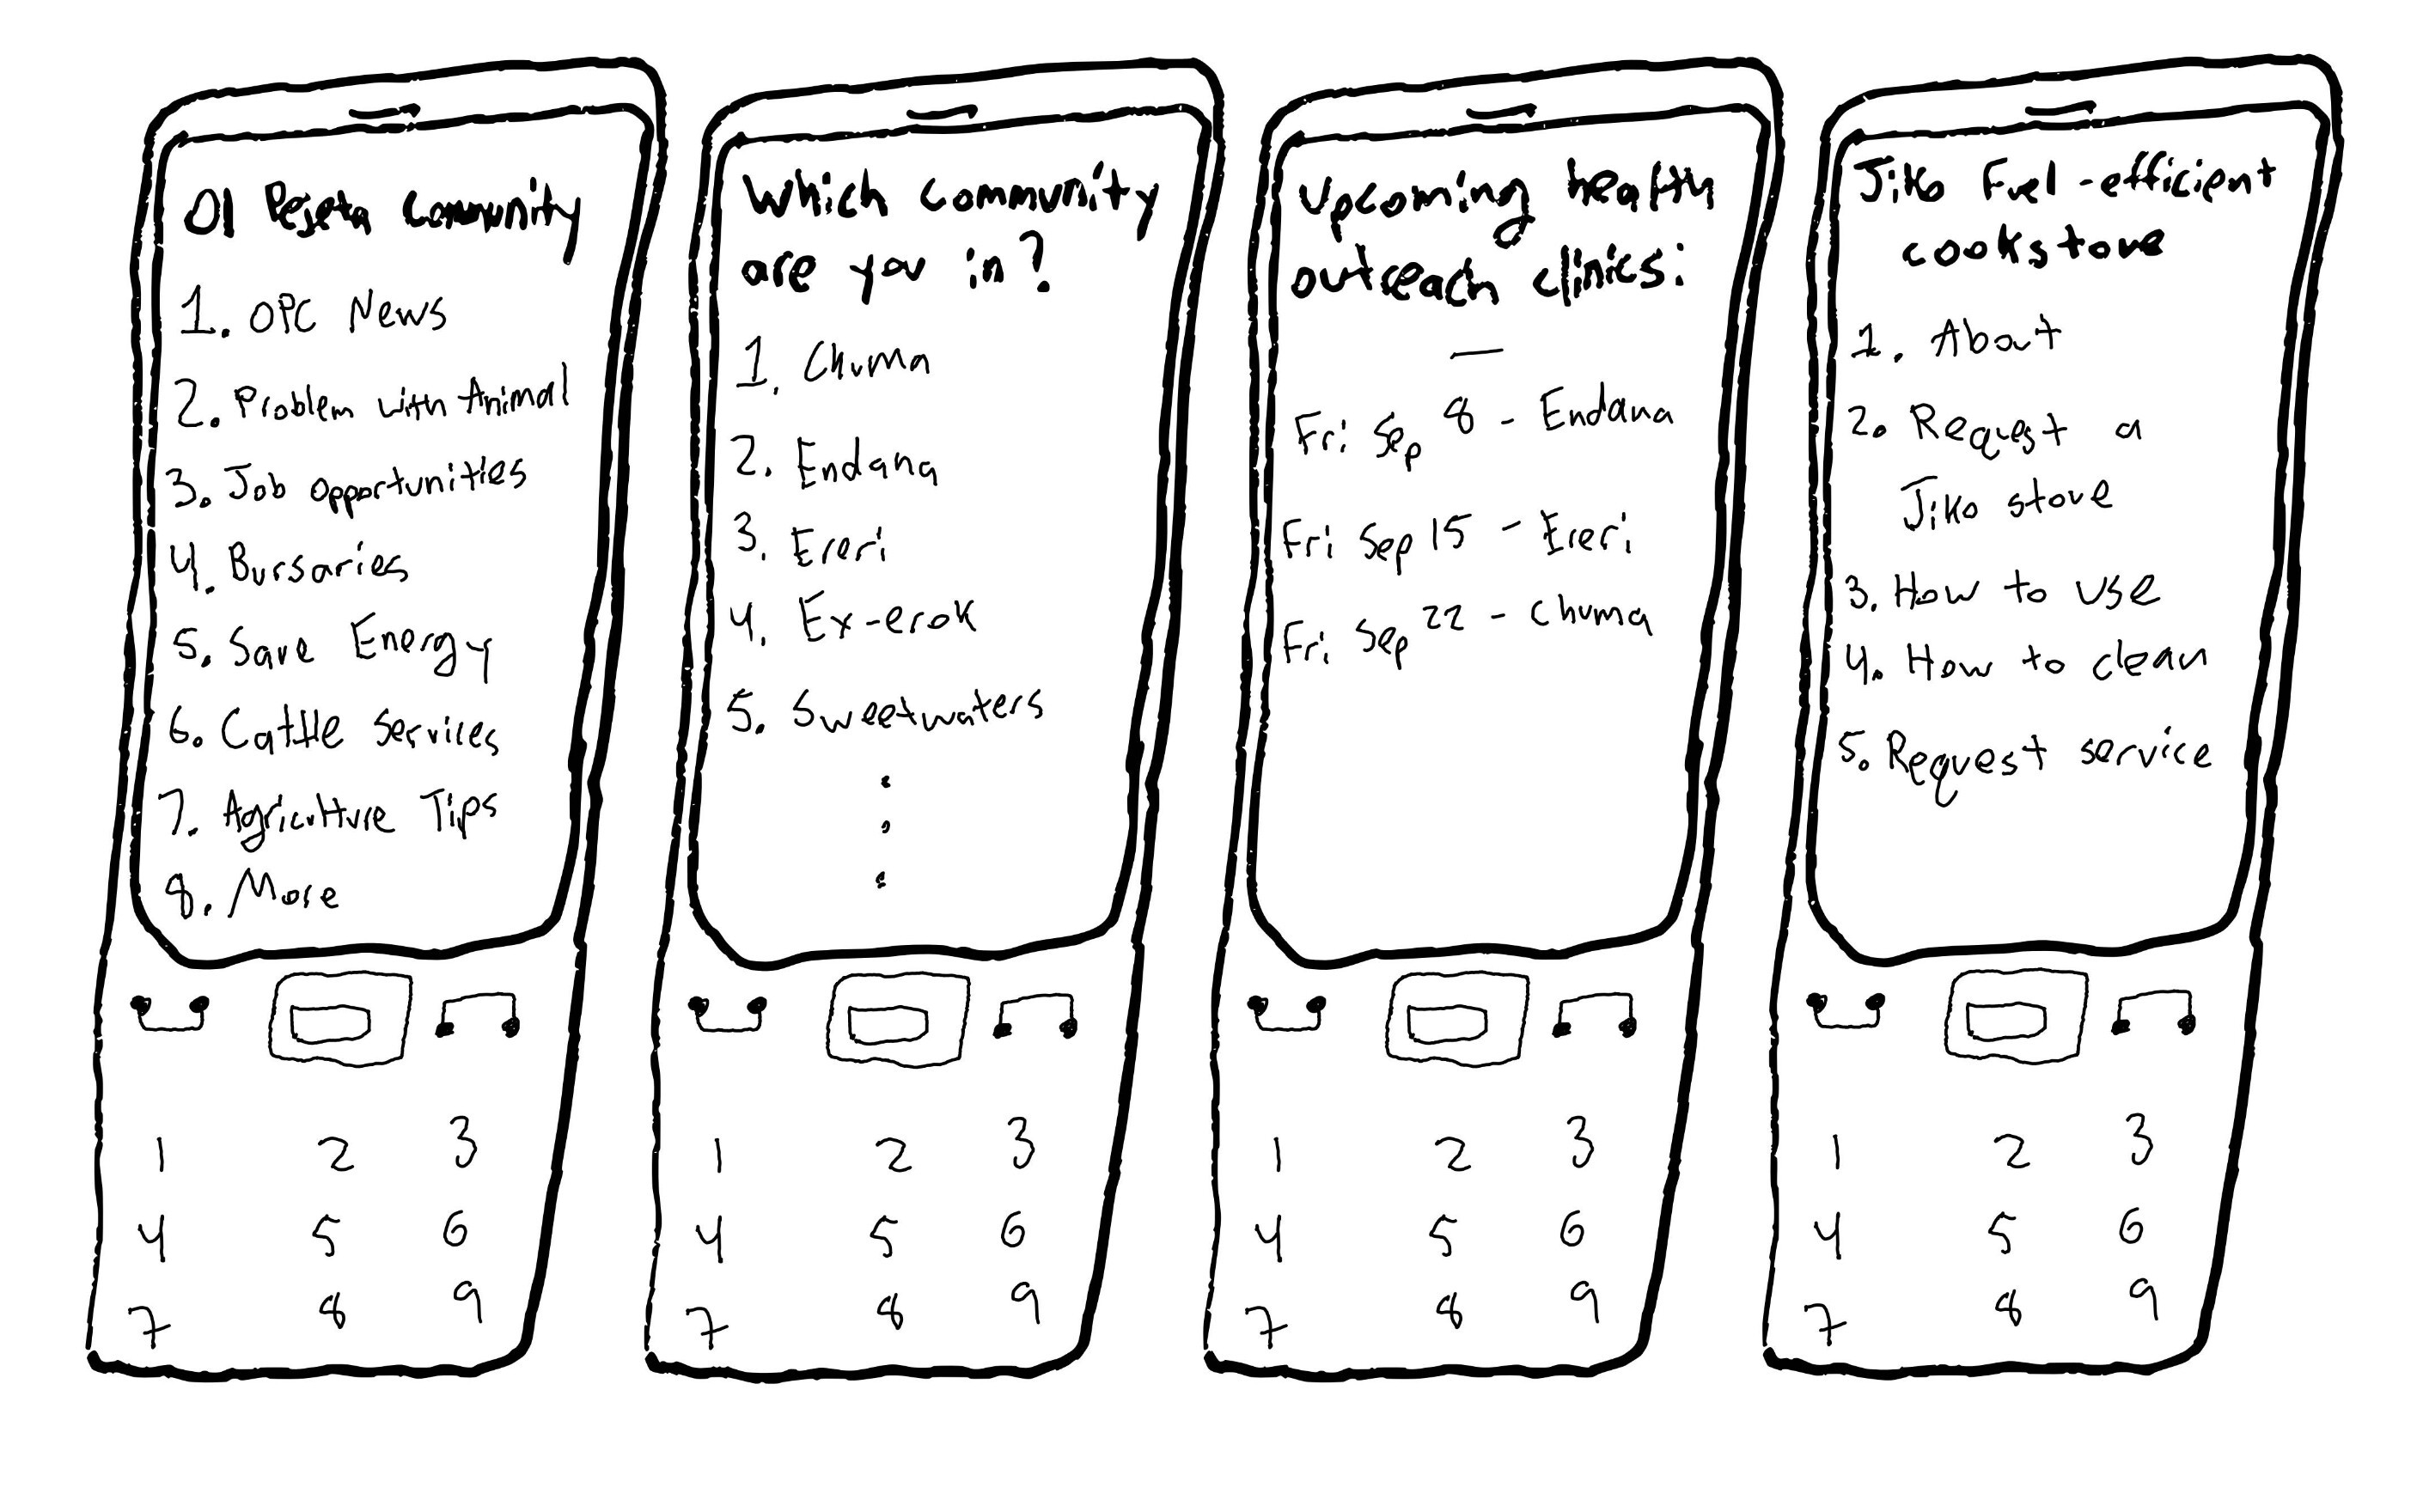 Ol Pejeta Community
1. OPC News
2. Problem with Animal
3. Job opportunities
4. Bursaries
5. Save Energy
6. Cattle Services
7. Agriculture Tips
8. More
1 2 3
4 5 6
7 8 9
Which community
are you in?
1. Chuma
2. Endana
3. Ereri
4. Ex-erok
5. Sweetwaters
1 2 3
4 5 6
7 8 9
Upcoming health
outreach clinics:
—
Fri Sep 8 - Endana
Fri Sep 15 - Ereri
Fri Sep 22 - Chuma
1 2 3
4 5 6
7 8 9
Jiko Fuel-efficient
cookstove
1. About
2. Request a
Jiko stove
3. How to use
4. How to clean
5. Request service
1 2 3
4 5 6
7 8 9